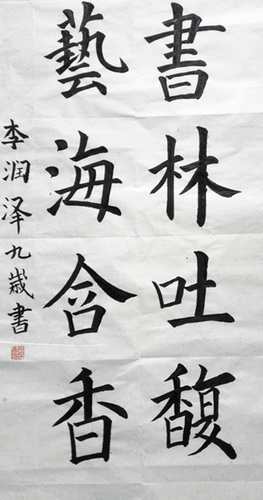 書林吐馥
藝海含香
李润泽九歲書